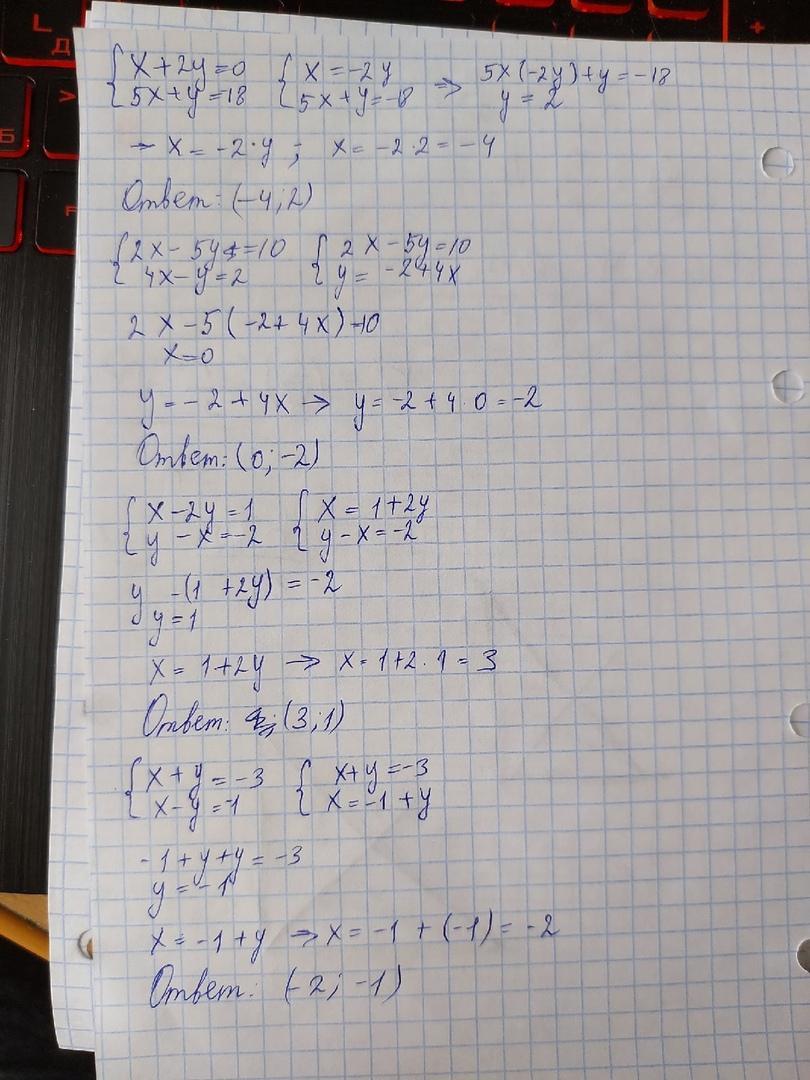 {x+2y=0 {x=-2y => 5x(-2y)+y=-18
{5x+y=18 {5x+y=-18 y=2
→ x = -2·y ; x = -2·2 = -4
Ответ: (-4;2)
{2x-5y=10 {2x-5y=10
{4x-y=2 {y=-2+4x
2x-5(-2+4x)=10
x=0
y=-2+4x → y=-2+4·0=-2
Ответ: (0;-2)
{x-2y=1 {x=1+2y
{y-x=-2 {y-x=-2
y-(1+2y)=-2
y=1
x=1+2y → x=1+2·1=3
Ответ: (3;1)
{x+y=-3 {x+y=-3
{x-y=-1 {x=-1+y
-1+y+y=-3
y=-1
x=-1+y → x=-1+(-1)=-2
Ответ: (-2;-1)